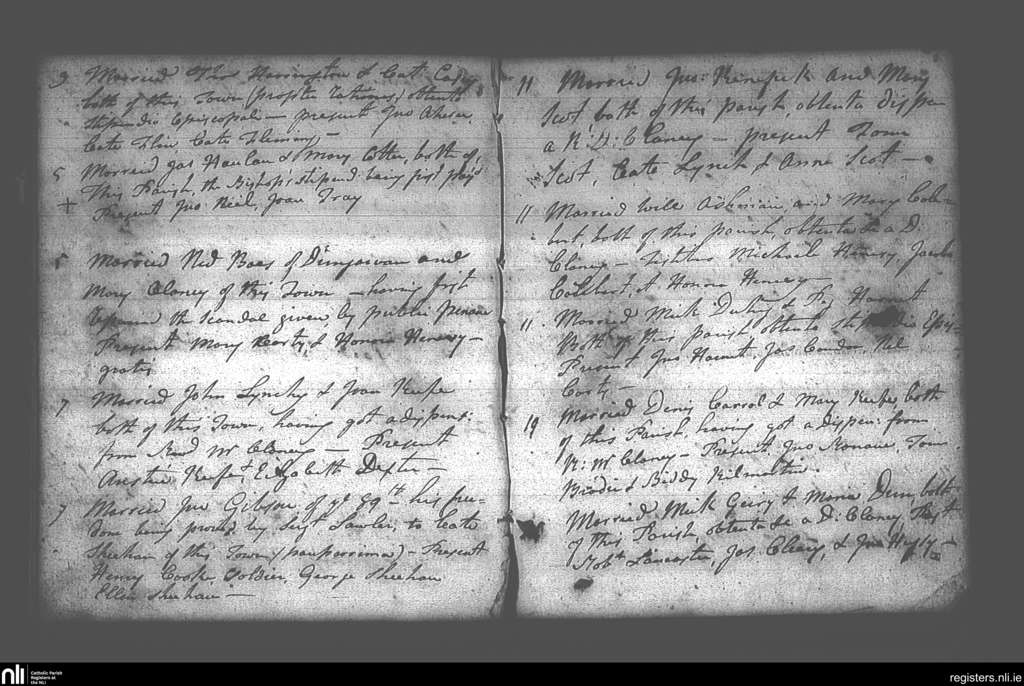 3 Married Thos Harrington & Cat. Cody
both of this Town (propter rationes) obtento
stipendio Episcopali – present Jno Ahern
Cate Flin, Cate Fleming –
5 Married Jas Hanlan & Mary Cotter, both of
This Parish, the Bishop's stipend being first paid
+ Present Jno Neil, Joan Tray
5 Married Ned Baes of Dungarvan and
Mary Clancy of this Town – having first
the scandal given, by public penance
Present Mary & Honora Henesy –
gratis
7 Married John Lynchy & Joan Keefe
both of this Town, having got a dispens:
from Revd Mr Clancy – Present
Anstice Keefe & Elizabeth Dexter –
7 Married Jno Gibson of ye 89th his free-
dom being proved by Sergt Lawler, to Cate
Sheehan of this Town (pauperrima) – Present
Henry Cook, Soldier, George Sheehan
Ellen Sheehan –
11 Married Jno: Kenefick and Mary
Scot, both of this parish, obtenta dispen
a R: D: Clancy – present Tom
Scot, Cate Lynch & Anne Scot –
11 Married Will and Mary Cole-
bert, both of this parish, obtenta a D.
Clancy – Testibus Michaele Henesy, Jacobo
Colebert, & Honora Henesy –
11 Married Mick & Harnet
Both of this parish obtento stipendio Epis-
Present Jno Harnet, Jas Condon, Nel
Carty –
19 Married Denis Carrol & Mary Keefe, both
of this Parish, having got a dispen: from
R: Mr Clancy – Present, Jno Ronane, Tom
& Biddy
Married Mick Geiry & Maria Dun, both
of this Parish, obtenta a D: Clancy Test
Robt Lancaster, Jas Cleary, & Jno
nli
Catholic Parish
Registers at
the NLI
registers.nli.ie